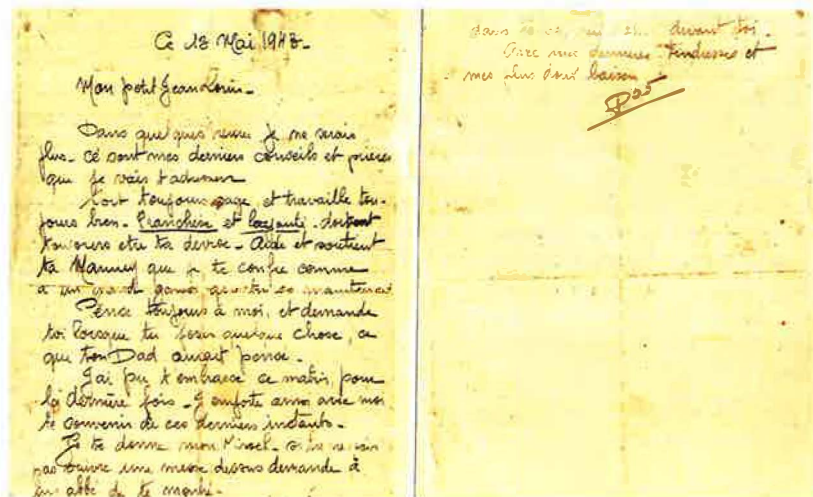 Ce 13 Mai 1943-
Mon petit Jean Louis-
Dans quelques heures je ne serais
plus- Ce sont mes derniers conseils et prières
que je vais t'adresser
Soit toujours sage, et travaille tou-
jours bien- Franchise et Loyauté doivent
toujours etre ta devise- Aide et soutient
ta Mammy que je te confie comme
à un grand garçon que tu es maintenant
Pense toujours à moi, et demande
toi lorsque tu feras quelque chose, ce
que ton Dad aurait pensé-
J'ai pu t'embrasser ce matin, pour
la dernière fois- J'emporte ainsi avec moi
le souvenir de ces derniers instants-
Je te donne mon Missel- si tu ne sais
pas suivre une messe dessus demande à
un abbé de te montrer-
devant toi-
Avec mes dernieres tendresses et
mes plus doux baisers